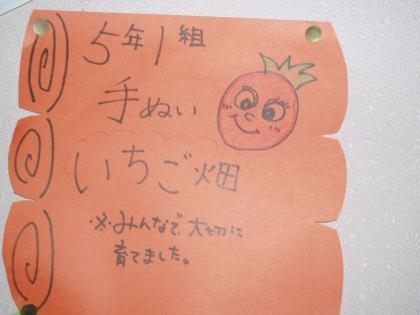 5年1組
手ぬい
いちご畑
※みんなで大切に
育てました。